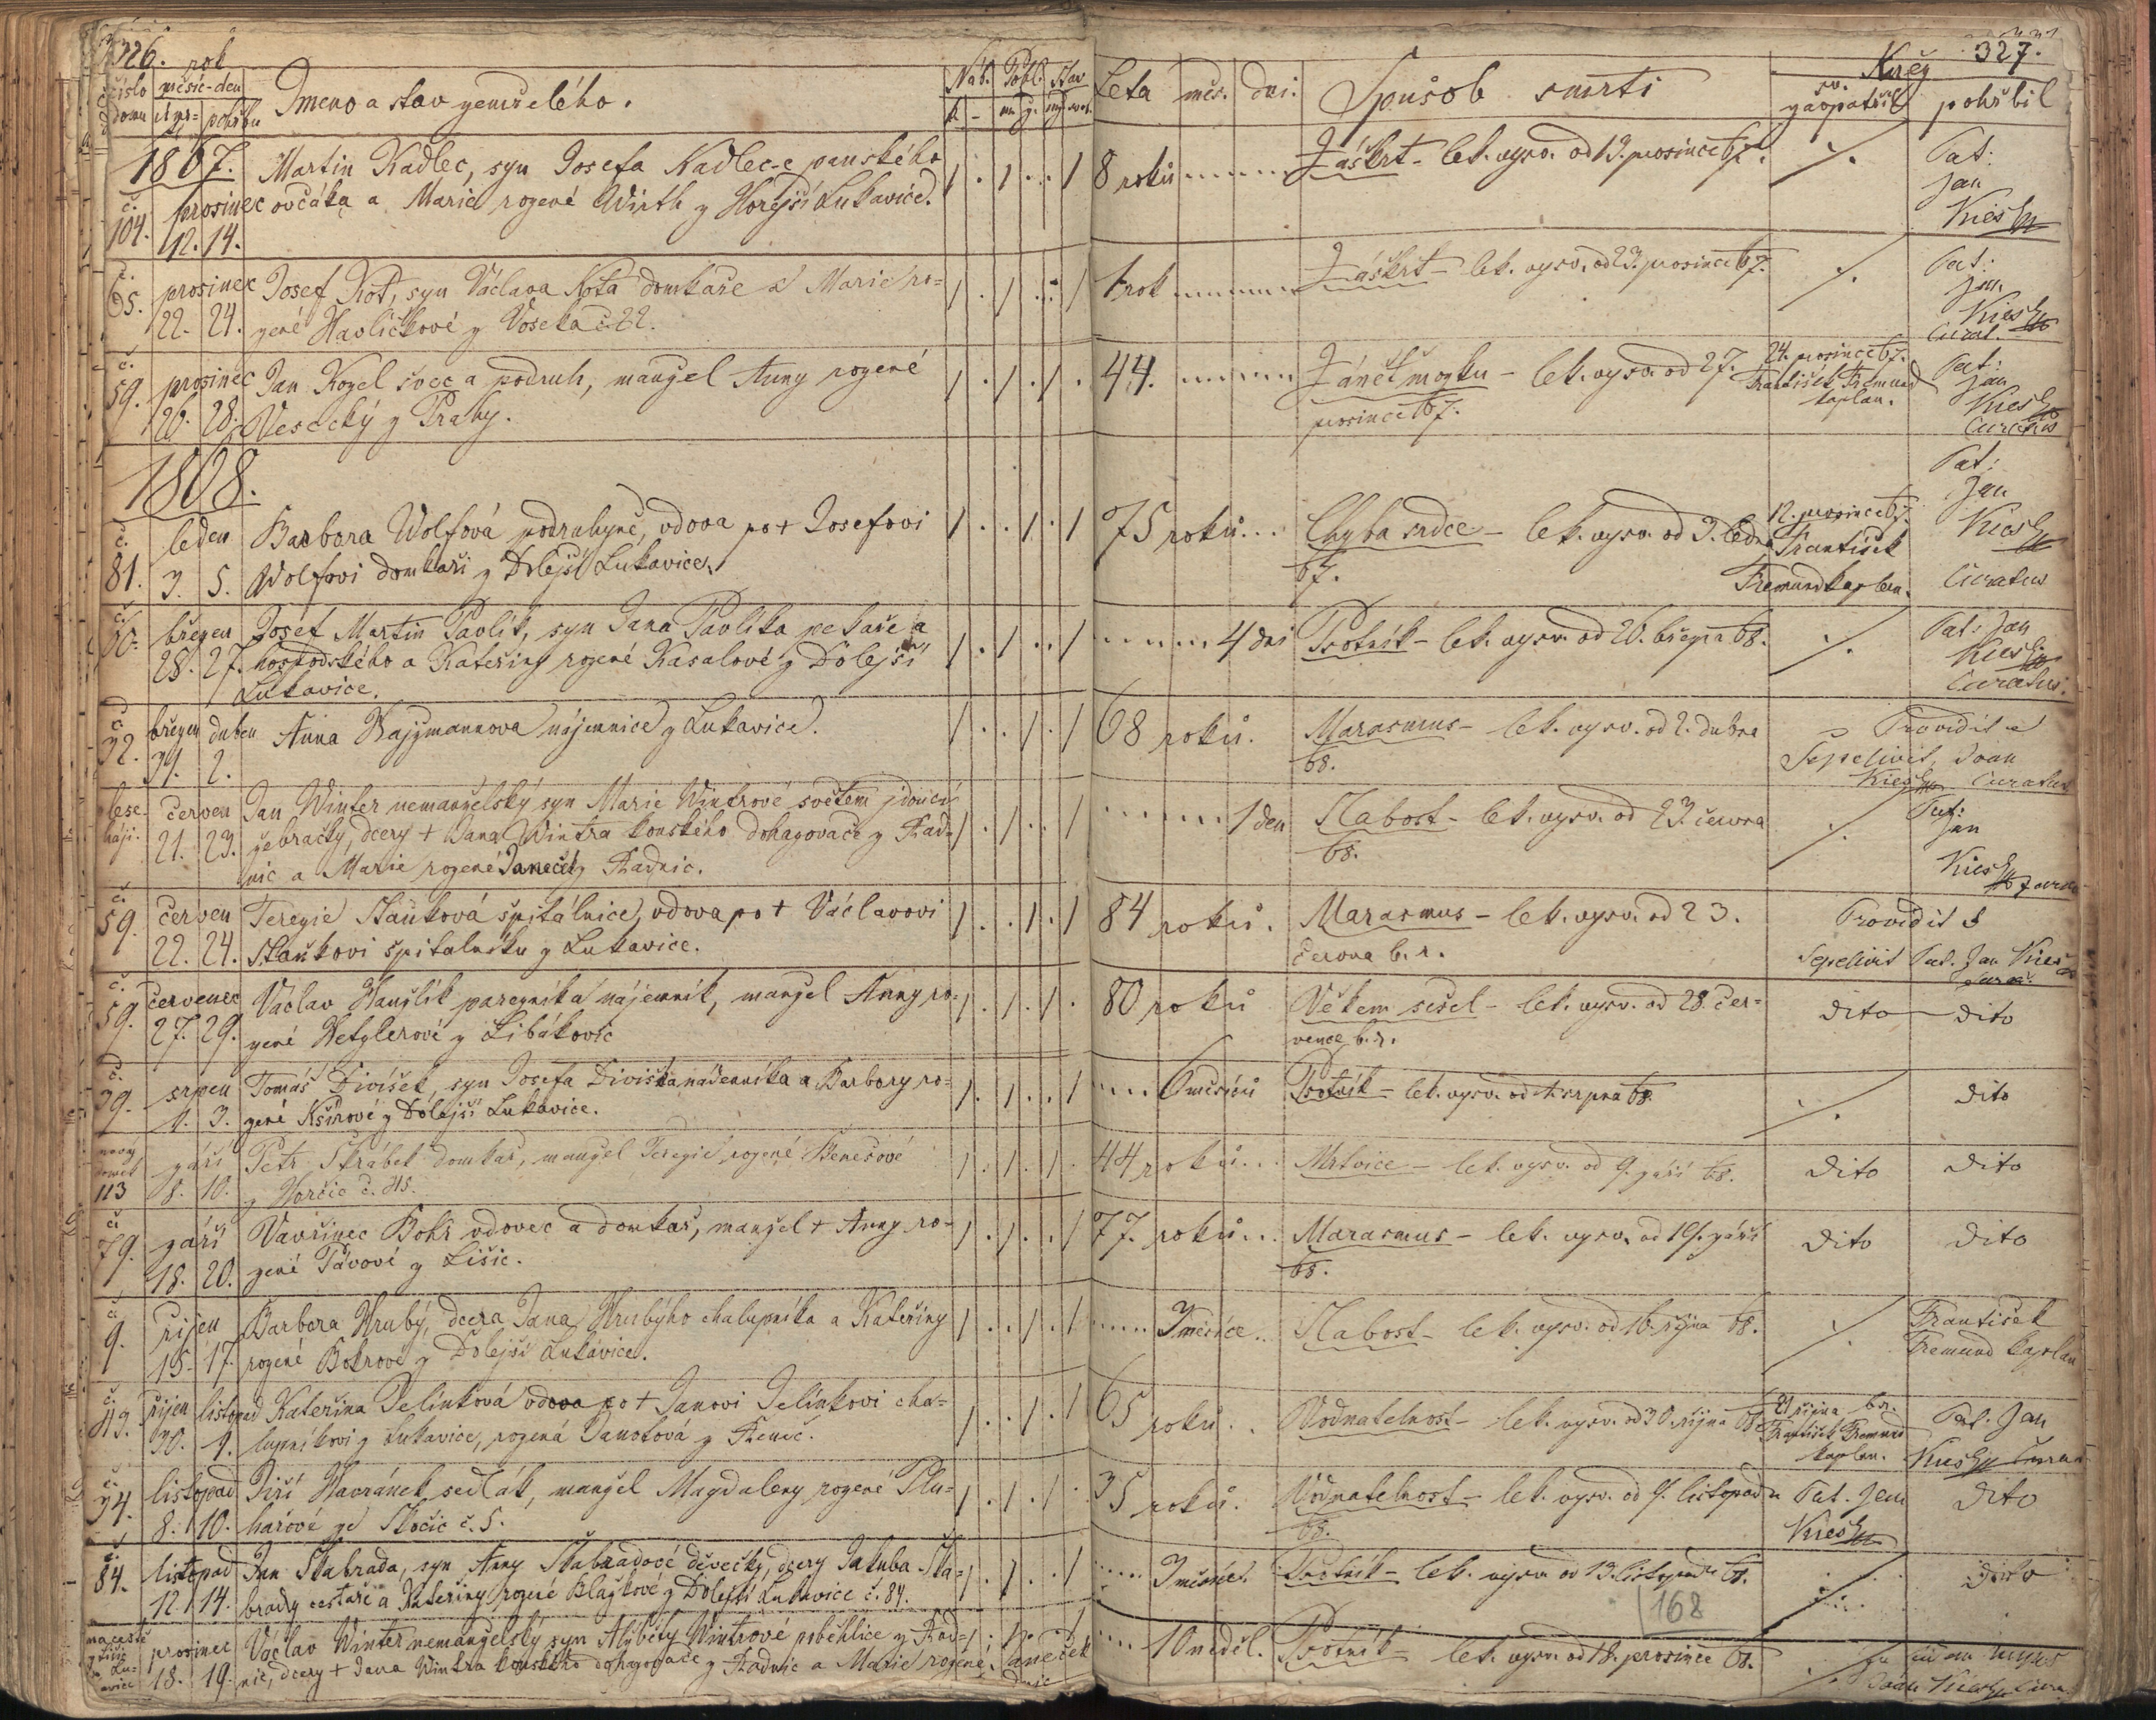 326. rok
číslo domu
měsíc - den
úmr= pohřbu
Jmeno a stav zemřelého.
Náb. Pohl. Stav
Leta měs. dni.
Spůsob smrti
Kněz
327.
sv. zaopatřil
pohřbil
1867. Martin Kadlec, syn Josefa Kadlec-e panského
č. 104. prosinec ovčáka a Marie rozené Wirth z Hořejší Lukavice.
12. 14.
8 roků
Záškrt - lek. vysv. od 13. prosince 67.
Pat:
Jan
Kiesz
č. 65. prosinec Josef Kot, syn Václava Kota domkaře a Marie ro=
22. 24. zené Havlíčkové z Voseka č. 22.
1 rok
Záškrt - lek. vysv. od 23. prosince 67.
Pat:
Jan
Kiesz
Curat.
č. 59. prosinec Jan Kozel švec a podruh, manžel Anny rozené
26. 28. Vesecký z Prahy.
44.
Zánět mozku - lek. vysv. od 27.
prosince 67.
24. prosince 67.
František Fremund
kaplan.
Pat:
Jan
Kiesz
Curatus
1868.
č. 81. leden Barbora Wolfová podruhyně, vdova po + Josefovi
3. 5. Wolfovi domkaři z Dolejší Lukavice.
75 roků
Chyba srdce - lek. vysv. od 3. ledna
67.
12. prosince 67.
František
Fremund kaplan.
Pat:
Jan
Kiesz
Curatus
č. 10. březen Josef Martin Pavlík, syn Jana Pavlíka pekaře a
28. 27. hospodského a Kateřiny rozené Kasalové z Dolejší
Lukavice.
4 dni
Psotník - lek. vysv. od 26. března 68.
Pat: Jan
Kiesz
Curatus.
č. 32. březen duben Anna Hajzmannova nájemnice z Lukavice.
31. 2.
68 roků.
Marasmus - lek. vysv. od 2. dubna
68.
Providit a
Sepelivit, Joan
Kiesz Curatus
červen Jan Winter nemanželský syn Marie Wintrové světem jdoucí
21. 23. žebračky, dcery + Jana Wintra konského dohazovače z Rad=
nic a Marie rozené Janeček z Radnic.
1 den
Slabost - lek. vysv. od 23. června
68.
Pat:
Jan
Kiesz
č. 59. červen Terezie Staňková špitálnice, vdova po + Václavovi
22. 24. Staňkovi špitalníku z Lukavice.
84 roků.
Marasmus - lek. vysv. od 23.
června b. r.
Providit &
Sepelivit Pat. Jan Kiesz
č. 59. červenec Václav Hanzlík parezníka nájemník, manžel Anny ro=
27. 29. zené Hetzlerové z Libákovic
80 roků
Věkem sešel - lek. vysv. od 28. čer=
vence b. r.
dito dito
č. 39. srpen Tomáš Divíšek, syn Josefa Divíška nádenníka a Barbory ro=
1. 3. zené Kšírové z Dólejší Lukavice.
6 měsíců
Psotník - lek. vysv. od 1. srpna 68.
dito
nový domek
113
září Petr Škrábek domkař, manžel Terezie rozené Benešové
8. 10. z Horšic č. 45.
44 roků
Mrtvice - lek. vysv. od 9. září 68.
dito dito
č. 79. září Vavřinec Bokr vdovec a domkař, manžel + Anny ro=
18. 20. zené Távové z Lišic.
77. roků
Marasmus - lek. vysv. od 19. září
68.
dito dito
č. 9. říjen Barbora Hrubý, dcera Jana Hrubýho chalupníka a Kateřiny
15. 17. rozené Bokrové z Dolejší Lukavice.
3 měsíce
Slabost - lek. vysv. od 16. října 68.
František
Fremund kaplan
č. 113. říjen listopad Kateřina Jelínková vdova po + Janovi Jelínkovi cha=
30. 1. lupníkovi z Lukavice, rozená Janotová z Renč.
65 roků
Vodnatelnost - lek. vysv. od 30. října 68
21 října br.
František Fremund
kaplan.
Pat. Jan
Kiesz
č. 34. listopad Jiří Havránek sedlák, manžel Magdaleny rozené Plu=
8. 10. hařové ze Skočic č. 5.
35 roků.
Vodnatelnost - lek. vysv. od 9. listopadu
68.
Pat. Jan
Kiesz
dito
č. 84. listopad Jan Škabrada, syn Anny Škabradové děvečky, dcery Jakuba Ška=
12. 14. brady cestaře a Kateřiny rozené Blažkové z Dólejší Lukavice č. 84.
3 měsíce.
Psotník - lek. vysv. od 13. listopadu 68.
dito
168
prosinec Václav Winter nemanželský syn Alžběty Wintrové poběhlice z Rad=
18. 19. nic, dcery + Jana Wintra konského dohazovače z Radnic a Marie rozené Janeček
10 neděl.
Psotník - lek. vysv. od 18. prosince 68.
Joan Kiesz